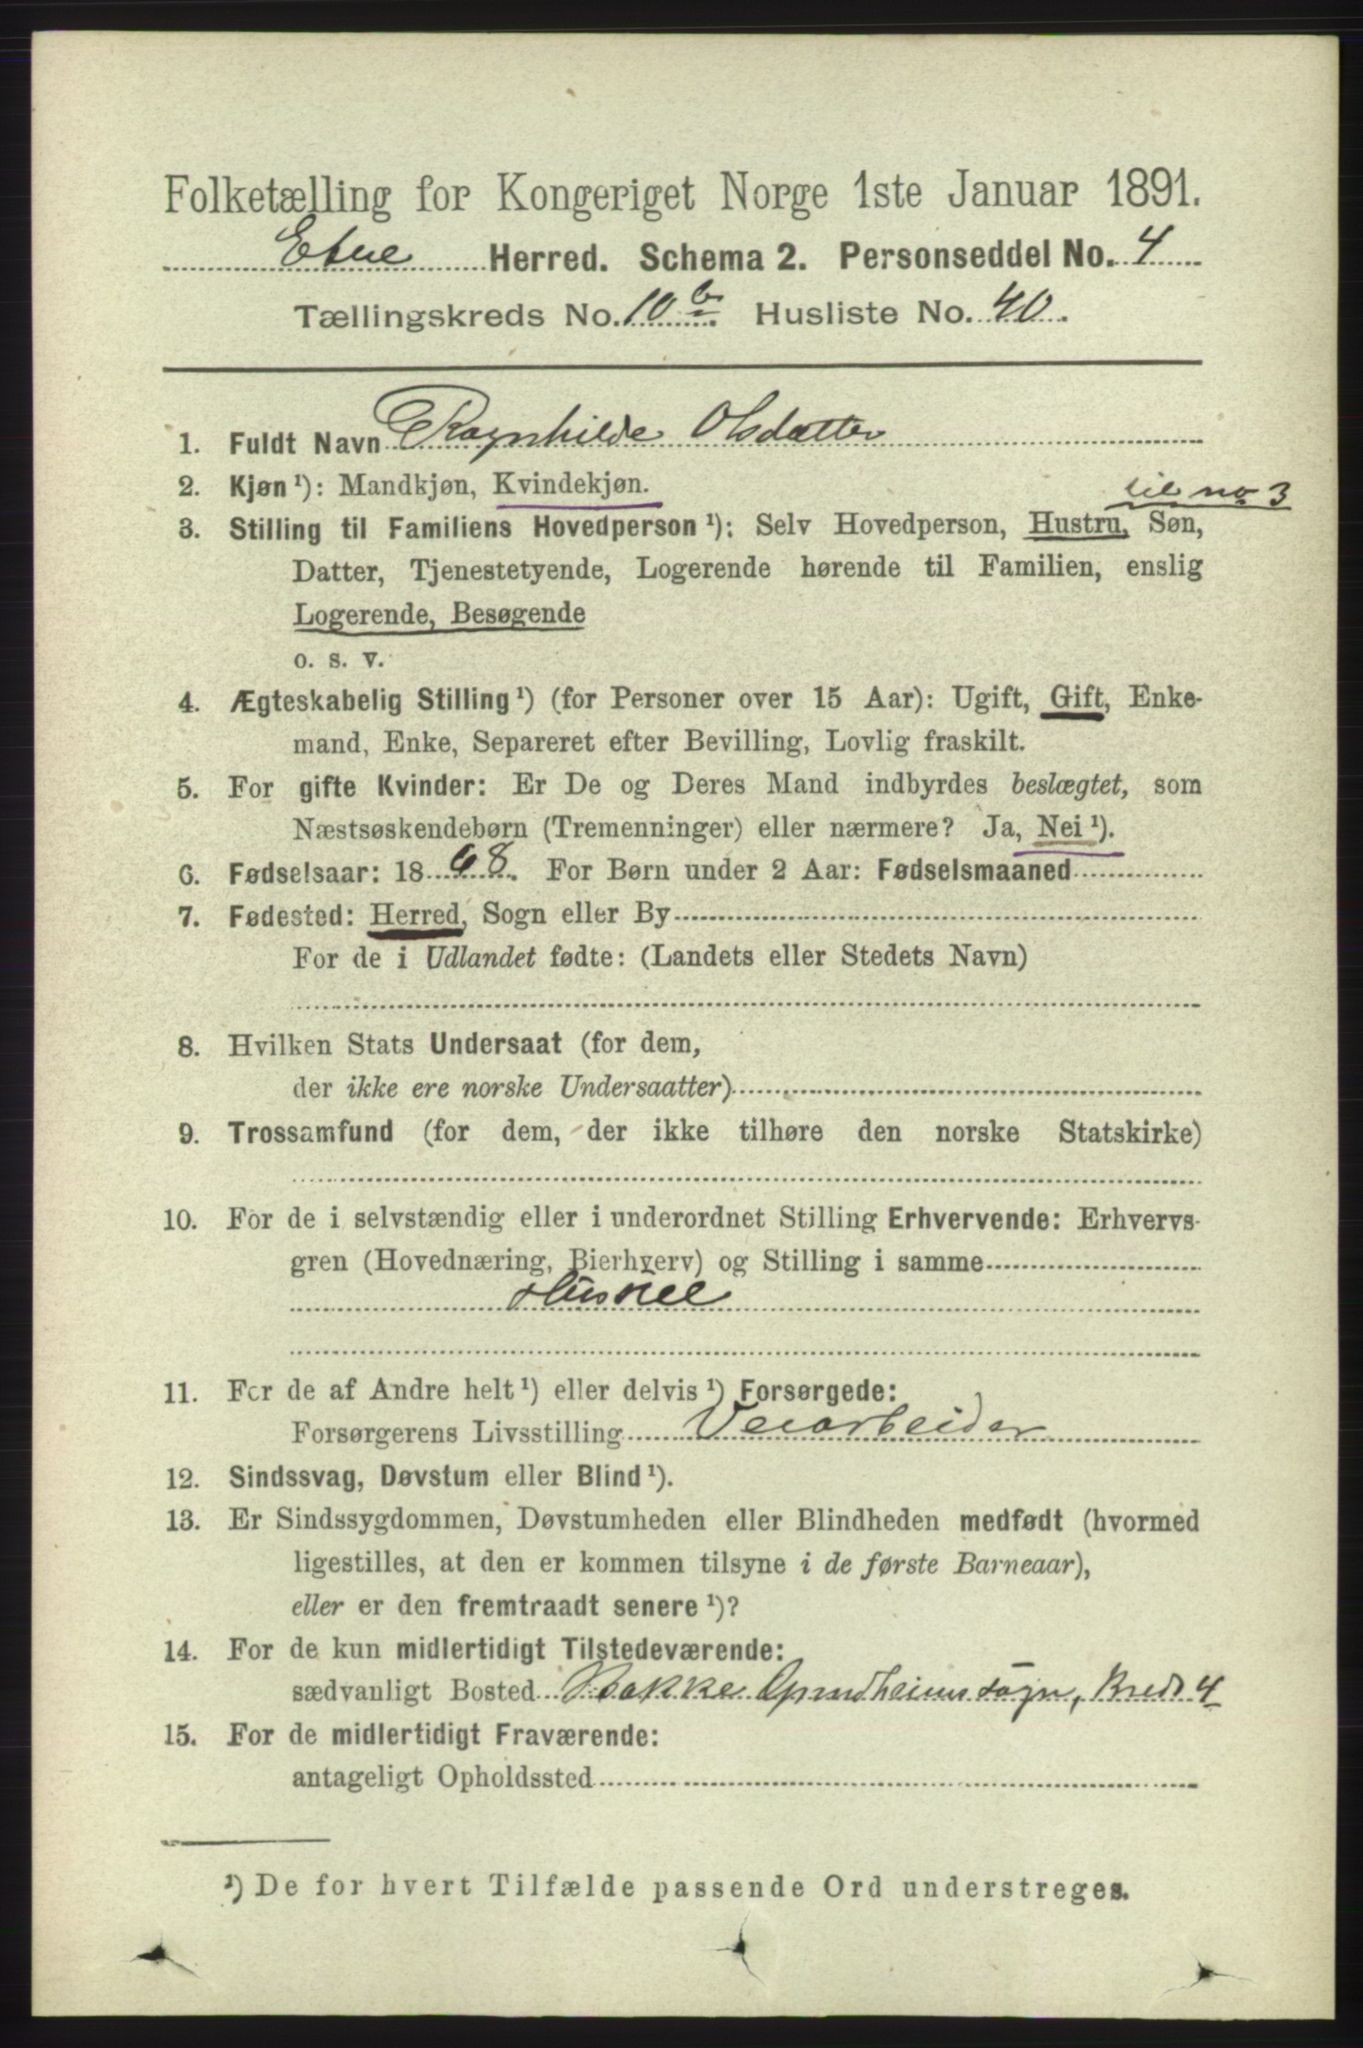 Folketælling for Kongeriget Norge 1ste Januar 1891.
Etne Herred. Schema 2. Personseddel No. 4
Tællingskreds No. 10 b Husliste No. 40.
1. Fuldt Navn Ragnhilde Olsdatter
2. Kjøn ¹): Mandkjøn, Kvindekjøn.
til no 3
3. Stilling til Familiens Hovedperson ¹): Selv Hovedperson, Hustru, Søn,
Datter, Tjenestetyende, Logerende hørende til Familien, enslig
Logerende, Besøgende
o. s. v.
4. Ægteskabelig Stilling ¹) (for Personer over 15 Aar): Ugift, Gift, Enke-
mand, Enke, Separeret efter Bevilling, Lovlig fraskilt.
5. For gifte Kvinder: Er De og Deres Mand indbyrdes beslægtet, som
Næstsøskendebørn (Tremenninger) eller nærmere? Ja, Nei ¹).
6. Fødselsaar: 18 68. For Børn under 2 Aar: Fødselsmaaned
7. Fødested: Herred, Sogn eller By
For de i Udlandet fødte: (Landets eller Stedets Navn)
8. Hvilken Stats Undersaat (for dem,
der ikke ere norske Undersaatter)
9. Trossamfund (for dem, der ikke tilhøre den norske Statskirke)
10. For de i selvstændig eller i underordnet Stilling Erhvervende: Erhvervs-
gren (Hovednæring, Bierhverv) og Stilling i samme
11. For de af Andre helt ¹) eller delvis ¹) Forsørgede:
Forsørgerens Livsstilling Veiarbeider
12. Sindssvag, Døvstum eller Blind ¹).
13. Er Sindssygdommen, Døvstumheden eller Blindheden medfødt (hvormed
ligestilles, at den er kommen tilsyne i de første Barneaar),
eller er den fremtraadt senere ¹)?
14. For de kun midlertidigt Tilstedeværende:
sædvanligt Bosted Bakke sogn, Kreds 4
15. For de midlertidigt Fraværende:
antageligt Opholdssted
¹) De for hvert Tilfælde passende Ord understreges.